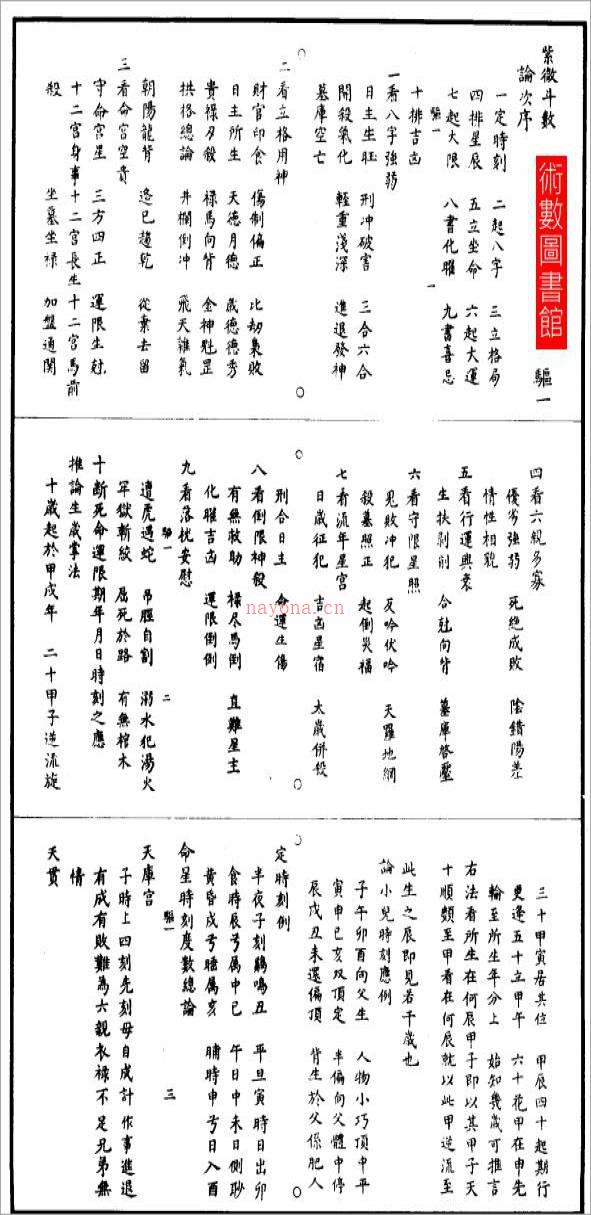 紫微斗數
論次序
驅一
術數圖書館
一定時刻 二起八字 三立格局
四排星辰 五立坐命 六起大運
七起大限 八書化曜 九書喜忌
驅一
一
十排吉凶
一看八字強弱
日主生旺 刑冲破害 三合六合
開殺氣化 輕重淺深 進退發神
墓庫空亡
二看立格用神
財官印食 傷制偏正 比劫梟敗
日主所生 天德月德 歲德德秀
貴祿刃殺 祿馬向背 金神魁罡
拱格總論 井欄倒冲 飛天誰氣
朝陽龍背 逄巳趨乾 從棄去留
三看命宮空貴
守命宮星 三方四正 運限生尅
十二宮身事 十二宮長生 十二宮馬前
殺 坐墓坐祿 加盤通関
四看六親多寡
優劣強弱 死絶成敗 陰錯陽差
情性相貌
五看行運興衰
生扶剥削 合尅向背 墓庫啓壓
六看守限星照
見敗冲犯 反吟伏吟 天羅地網
殺墓照正 起倒災福
七看流年星宮
日歲征犯 吉凶星宿 太歲併殺
刑合日主 命運生傷
八看倒限神殺
有無救助 祿尽馬倒 直難星主
化曜吉凶 運限倒例
九看落扰安慰
驅一
二
遭虎遇蛇 吊脰自割 溺水犯湯火
牢獄斬絞 屈死於路 有無棺木
十斷死命運限期年月日時刻之應
推論生歲掌法
十歲起於甲戌年 二十甲子逆流旋
三十甲寅居其位 甲辰四十起期行
更逢五十立甲午 六十花甲在申先
輪至所生年分上 始知幾歲可推言
右法看所生在何辰甲子即以其甲子天
十順頰至甲看在何辰就以此甲逆流至
此生之辰即見若干歲也
論小兒時刻應例
子午卯酉向父生 人物小巧頂中平
寅申巳亥双頂定 半偏向父體中停
辰戌丑未還偏頂 背生於父係肥人
定時刻例
半夜子刻鷄鳴丑 平旦寅時日出卯
食時辰兮属中巳 午日中未日側聁
黄昏戌兮睡属亥 晡時申兮日入酉
命星時刻度數總論
驅一
三
天庫宮
子時上四刻先刻母自成計 作事進退
有成有敗難為六親衣祿不足兄弟無
情
天貫